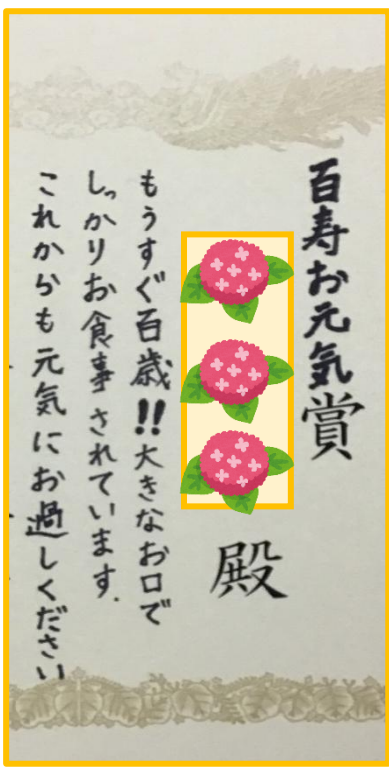 百寿お元気賞
殿
もうすぐ百歳!!大きなお口で
しっかりお食事されています.
これからも元気にお過しください